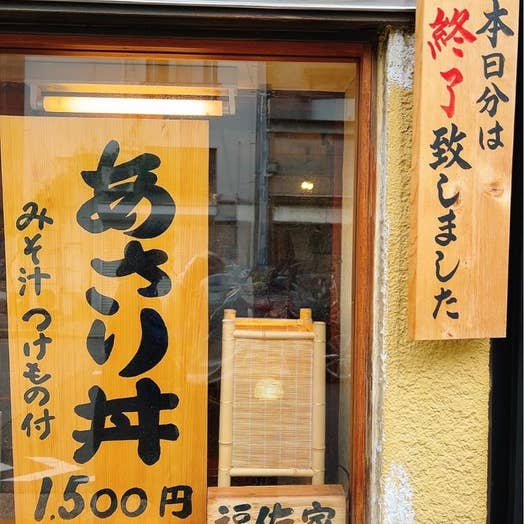 本日分は
終了致しました
あさり丼
みそ汁 つけもの付
1.500円